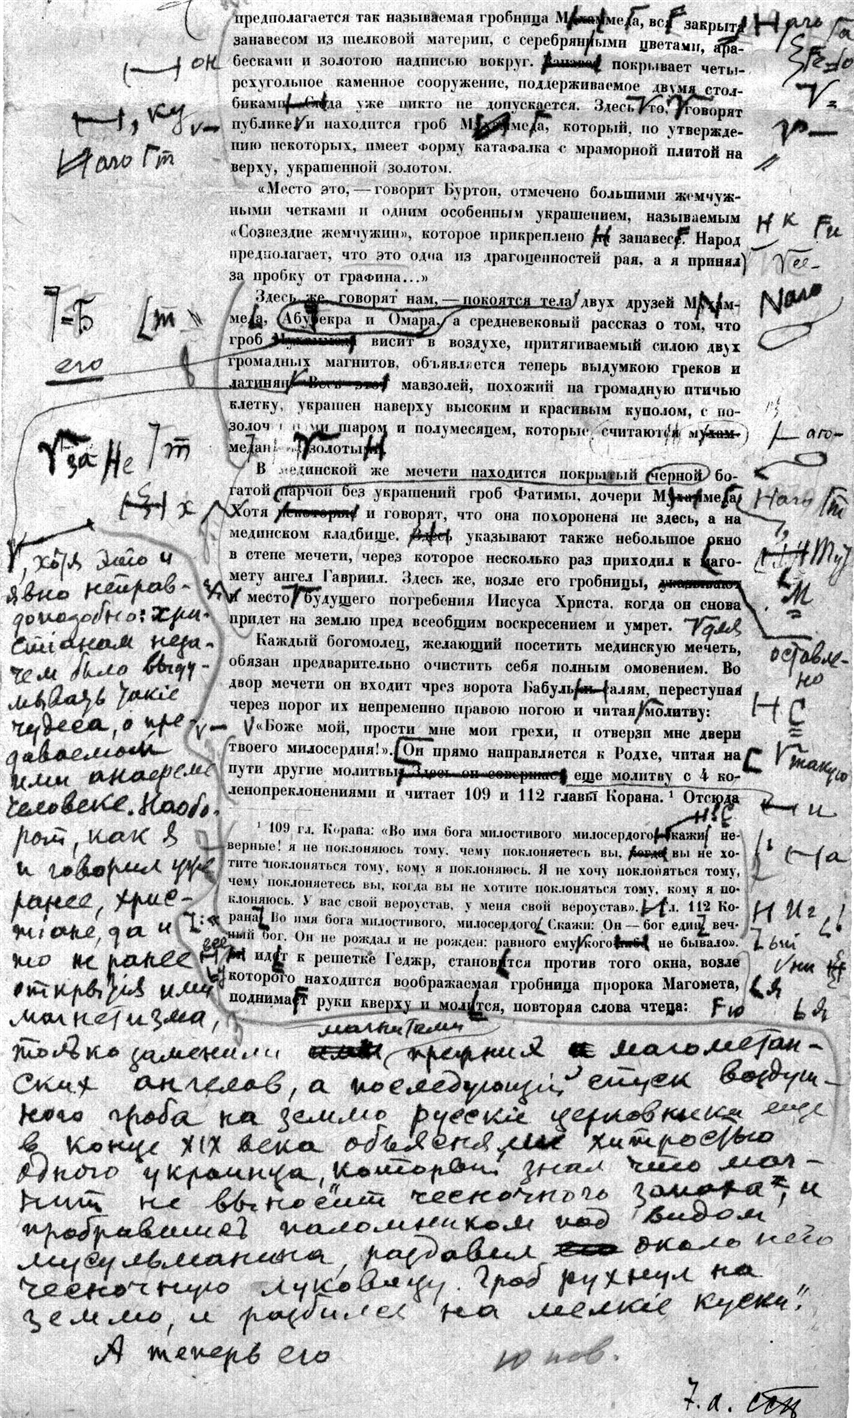 предполагается так называемая гробница Мухаммеда, вся закрыта
занавесом из шелковой материи, с серебрянными цветами, ара-
бесками и золотою надписью вокруг. покрывает четы-
рехугольное каменное сооружение, поддерживаемое двумя стол-
биками. Сюда уже никто не допускается. Здесь то, говорят
публике и находится гроб Мухаммеда, который, по утвержде-
нию некоторых, имеет форму катафалка с мраморной плитой на
верху, украшенной золотом.
«Место это, — говорит Буртон, отмечено большими жемчуж-
ными четками и одним особенным украшением, называемым
«Созвездие жемчужин», которое прикреплено к занавесе. Народ
предполагает, что это одна из драгоценностей рая, а я принял
за пробку от графина...»
Здесь же, говорят нам, — покоятся тела двух друзей Мухам-
меда, Абубекра и Омара, а средневековый рассказ о том, что
гроб Мухаммеда висит в воздухе, притягиваемый силою двух
громадных магнитов, объявляется теперь выдумкою греков и
латинян. Весь этот мавзолей, похожий на громадную птичью
клетку, украшен наверху высоким и красивым куполом, с по-
золоченными шаром и полумесяцем, которые считаются мухам-
медан золотым
В мединской же мечети находится покрытый черной бо-
гатой парчой без украшений гроб Фатимы, дочери Мухаммеда
Хотя некоторые и говорят, что она похоронена не здесь, а на
мединском кладбище. Здесь указывают также небольшое окно
в стене мечети, через которое несколько раз приходил к Маго-
мету ангел Гавриил. Здесь же, возле его гробницы, указывают
и место будущего погребения Иисуса Христа, когда он снова
придет на землю пред всеобщим воскресением и умрет.
Каждый богомолец, желающий посетить мединскую мечеть,
обязан предварительно очистить себя полным омовением. Во
двор мечети он входит чрез ворота Бабуль галям, переступая
через порог их непременно правою ногою и читая молитву:
«Боже мой, прости мне мои грехи, и отверзи мне двери
твоего милосердия!». Он прямо направляется к Родхе, читая на
пути другие молитвы. Здесь он совершает еще молитву с 4 ко-
ленопреклонениями и читает 109 и 112 главы Корана. ¹ Отсюда
¹ 109 гл. Корана: «Во имя бога милостивого милосердого скажи не-
верные! я не поклоняюсь тому, чему поклоняетесь вы, когда вы не хо-
тите поклоняться тому, кому я поклоняюсь. Я не хочу поклоняться тому,
чему поклоняетесь вы, когда вы не хотите поклоняться тому, кому я по-
клоняюсь. У вас свой вероустав, у меня свой вероустав». Гл. 112 Ко-
рана Во имя бога милостивого, милосердого Скажи: Он — бог един веч-
ный бог. Он не рождал и не рожден: равного ему кого не бывало».
идет к решетке Геджр, становится против того окна, возле
которого находится воображаемая гробница пророка Магомета,
поднимает руки кверху и молится, повторяя слова чтеца:
его
, хотя это и
явно неправ-
доподобно: хри-
стіанам неза-
чем было выду-
мывать такіе
чудеса, о пре-
даваемом
ими анафеме
человеке. Наобо-
рот, как я
и говорил уже
ранее, хрис-
тіане, да и
то не ранее
открытія ими
магнетизма,
только заменили магнитами прежних магометан-
ских ангелов, а последующій спуск воздуш-
ного гроба на землю русскіе церковники еще
в конце XIX века объясняли хитростью
одного украинца, который знал что маг-
нит не выносит чесночного запаха, и
пробравшись паломником под видом
мусульманина, раздавил около него
чесночную луковицу. Гроб рухнул на
землю, и разбился на мелкіе куски".
А теперь его
оставле-
но
такую